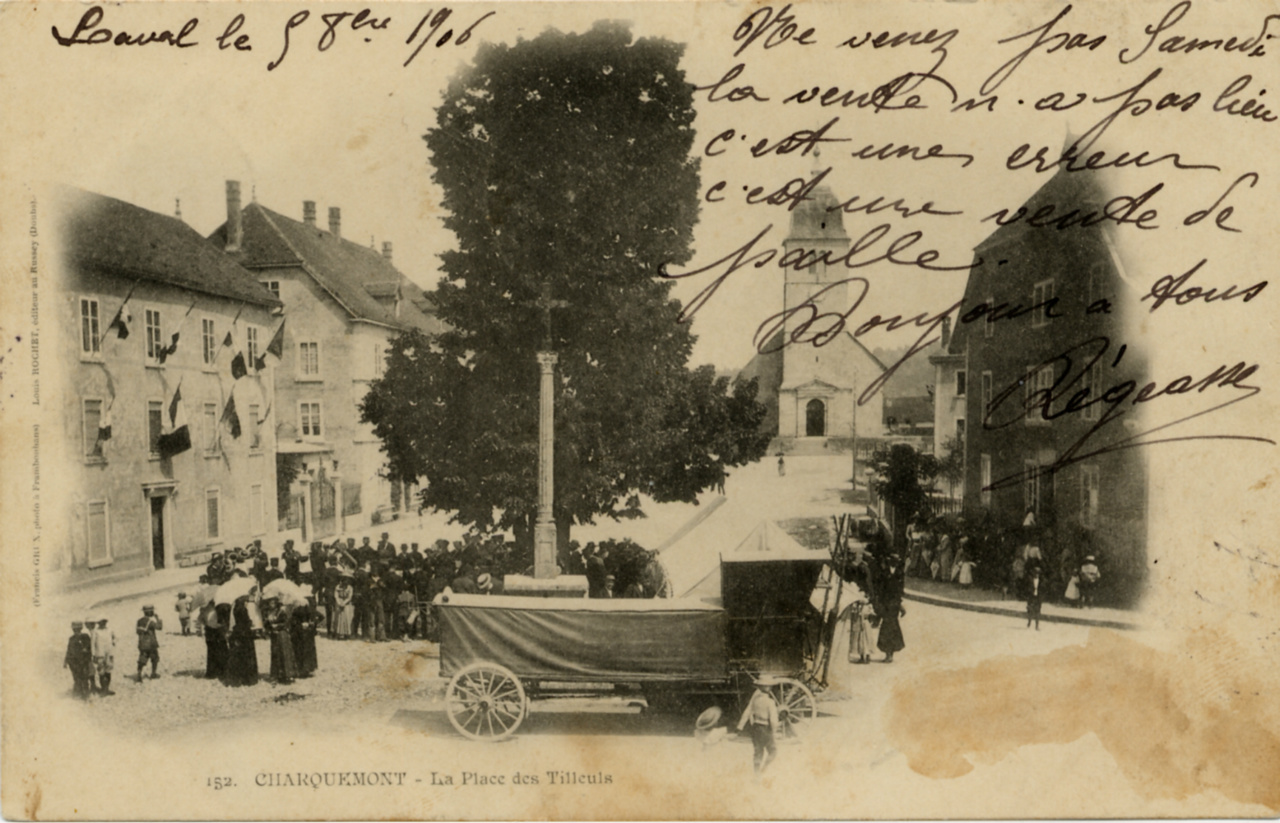 Laval le 5 8bre 1906
Ne venez pas Samedi
la vente n'a pas lieu
c'est une erreur
c'est une vente de
paille.
Bonjour a tous
Régeasse
(Francis GRUX, photo à Frambouhans) Louis ROGNET, éditeur au Russey (Doubs).
152. CHARQUEMONT - La Place des Tilleuls